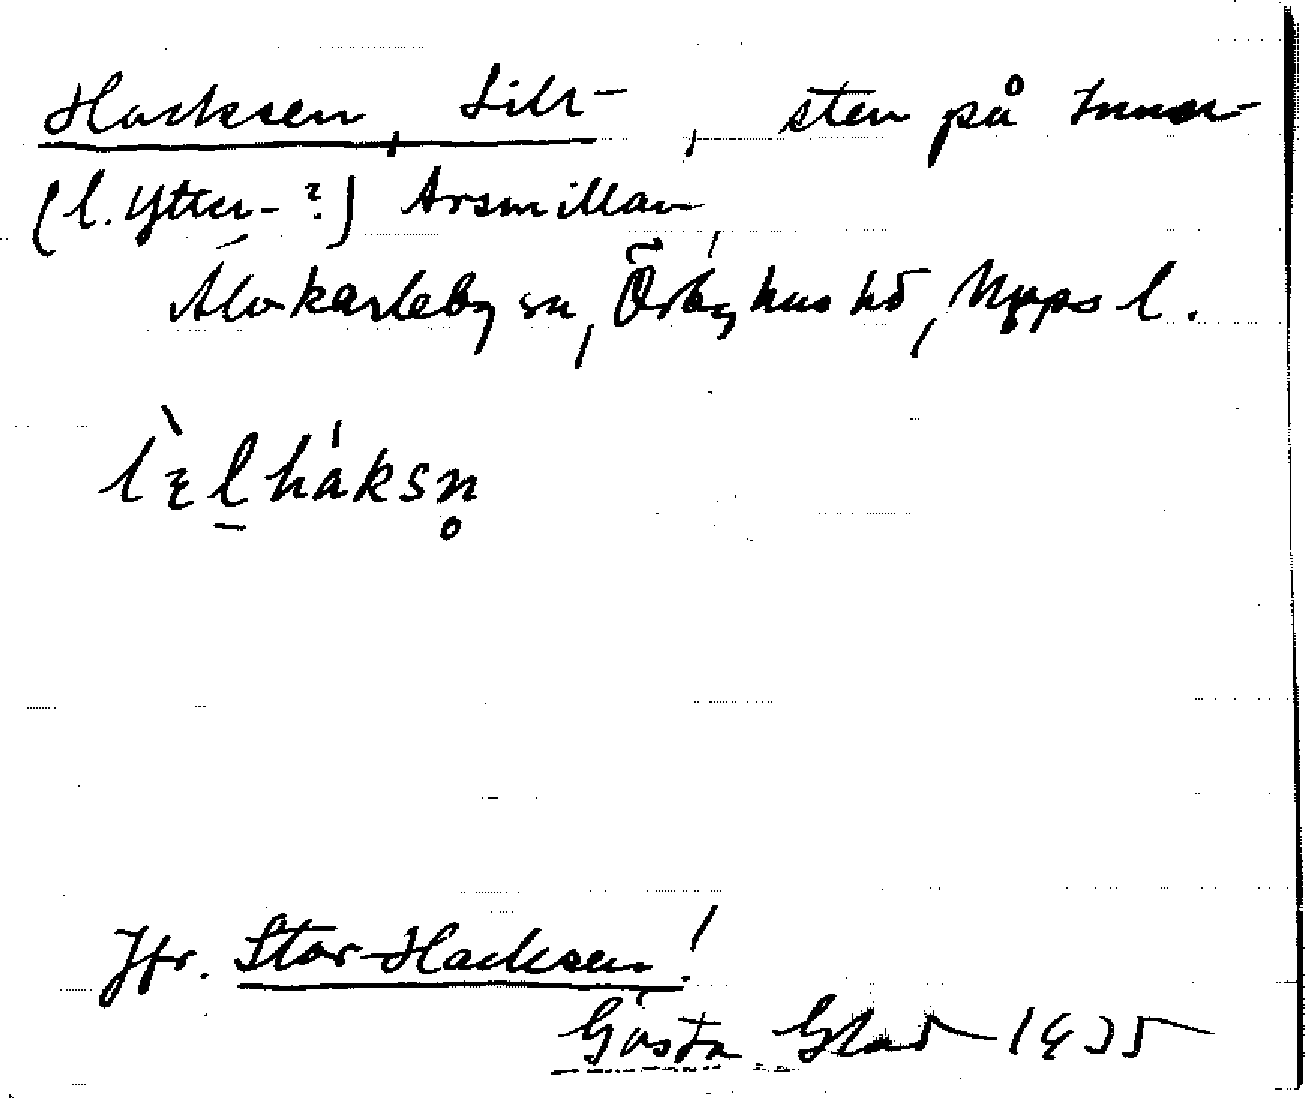 Hacksen, Lill- , sten på Inner-
(l. Ytter-?) Arsmillan,
Älvkarleby sn, Örbyhus hd, Upps l.
lɛ̀lháksn̥
Jfr. Stor-Hacksen!
Gösta 1935